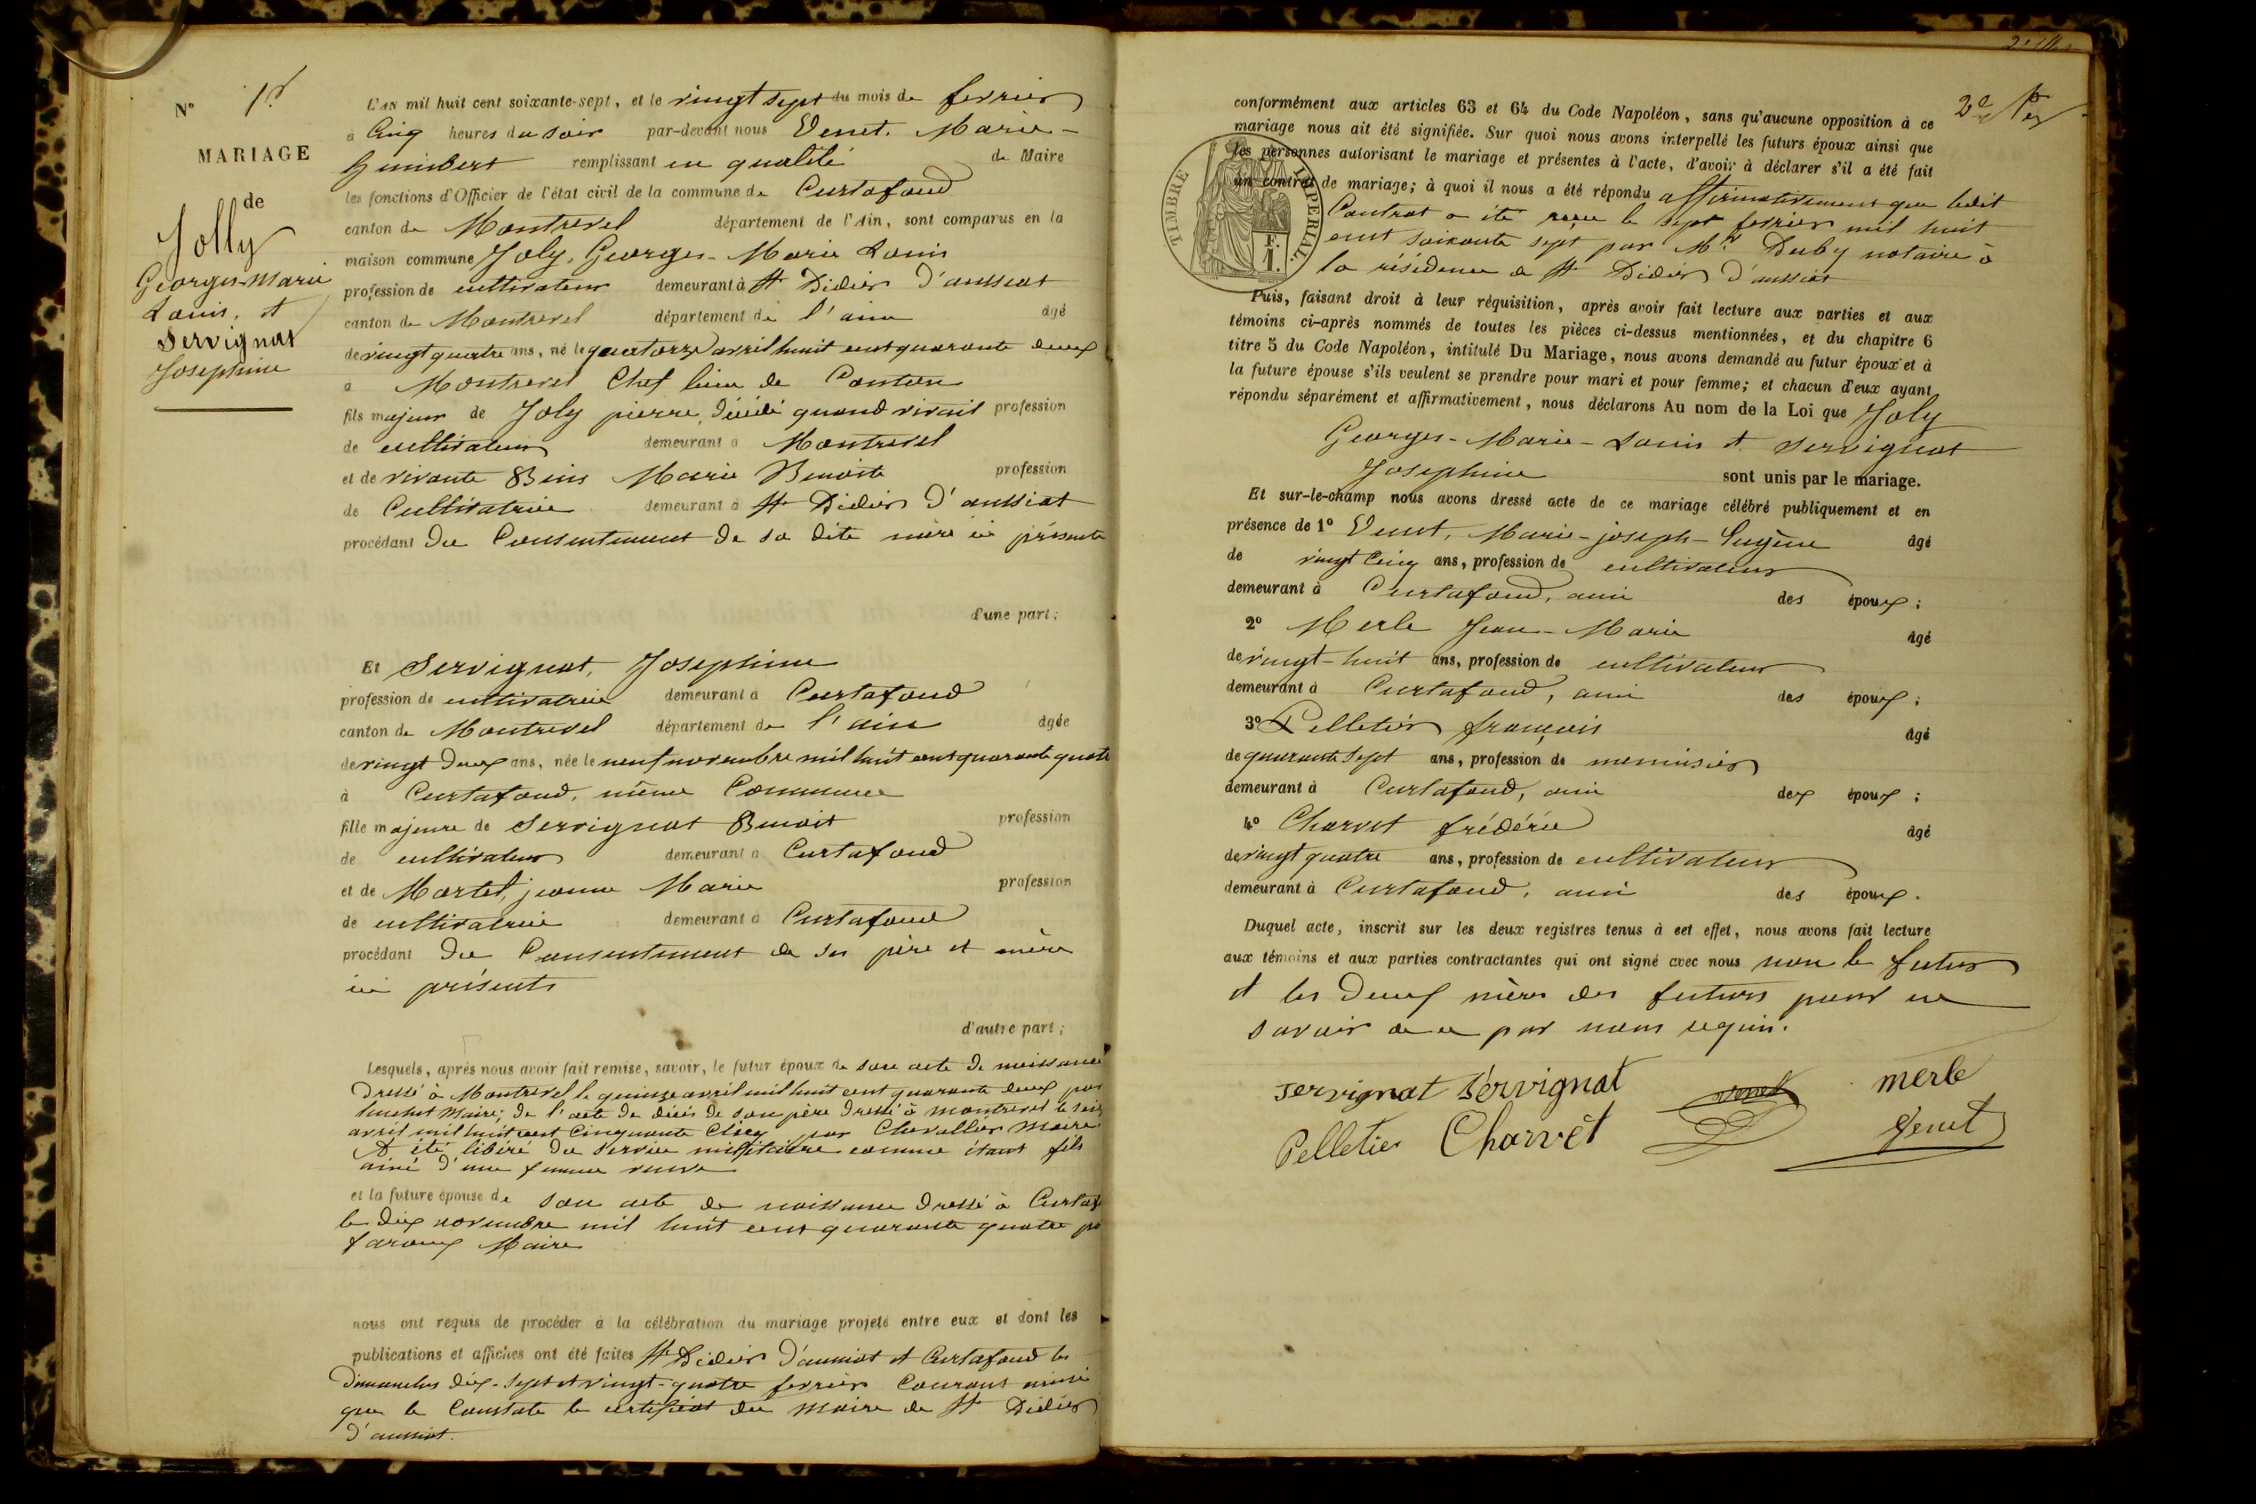 N° 1er
MARIAGE
de
Jolly
Georges-Marie
Louis, et
Servignat
Josephine
L'AN mil huit cent soixante-sept, et le vingt sept du mois de fevrier
à Cinq heures du soir par-devant nous Venet, Marie-
Humbert remplissant en qualité de Maire
les fonctions d'Officier de l'état civil de la commune de Curtafond
canton de Montrevel département de l'Ain, sont comparus en la
maison commune Joly, Georges-Marie Louis
profession de cultivateur demeurant à St Didier d'aussiat
canton de Montrevel département de l'ain âgé
de vingt quatre ans, né le quatorze avril huit cent quarante deux
à Montrevel Chef lieu de Canton
fils majeur de Joly pierre, décédé quand vivait profession
de cultivateur demeurant à Montrevel
et de vivante Marie Benoite profession
de Cultivatrice demeurant à St Didier d'aussiat
procédant du Consentement de sa dite mère ici présente
d'une part;
Et Servignat, Josephine
profession de cultivatrice demeurant à Curtafond
canton de Montrevel département de l'ain âgée
de vingt deux ans, née le neuf novembre mil huit cent quarante quatre
à Curtafond, même Commune
fille majeure de Servignat Benoit profession
de cultivateur demeurant à Curtafond
et de Martel, jeanne Marie profession
de cultivatrice demeurant à Curtafond
procédant du Consentement de ses père et mère
ici présents
d'autre part;
Lesquels, après nous avoir fait remise, savoir, le futur époux de son acte de naissance
Dressé à Montrevel le quinze avril mil huit cent quarante deux par
Maire; de l'acte de décès de son père dressé à montrevel le seize
avril mil huit cent Cinquante Cinq par Chevallier Maire
A été libéré du service militaire comme étant fils
ainé d'une femme veuve
et la future épouse de son acte de naissance dressé à Curtaf
le dix novembre mil huit cent quarante quatre pa
faroux Maire
nous ont requis de procéder à la célébration du mariage projeté entre eux et dont les
publications et affiches ont été faites St Didier d'aussiat et Curtafond les
Dimanches dix-sept et vingt-quatre fevrier Courant ainsi
que le Constate le certificat du Maire de St Didier
d'aussiat.
2e
conformément aux articles 63 et 64 du Code Napoléon, sans qu'aucune opposition à ce
mariage nous ait été signifiée. Sur quoi nous avons interpellé les futurs époux ainsi que
les personnes autorisant le mariage et présentes à l'acte, d'avoir à déclarer s'il a été fait
un contrat de mariage; à quoi il nous a été répondu affirmativement que ledit
Contrat a été reçu le sept fevrier mil huit
cent soixante sept par Mr Duby notaire à
la résidence de St Didier d'aussiat
TIMBRE IMPERIAL
F.
1.
Puis, faisant droit à leur réquisition, après avoir fait lecture aux parties et aux
témoins ci-après nommés de toutes les pièces ci-dessus mentionnées, et du chapitre 6
titre 5 du Code Napoléon, intitulé Du Mariage, nous avons demandé au futur époux et à
la future épouse s'ils veulent se prendre pour mari et pour femme; et chacun d'eux ayant
répondu séparément et affirmativement, nous déclarons Au nom de la Loi que Joly
Georges-Marie-Louis et Servignat
Josephine sont unis par le mariage.
Et sur-le-champ nous avons dressé acte de ce mariage célébré publiquement et en
présence de 1° Venet, Marie-joseph-Eugène âgé
de vingt Cinq ans, profession de cultivateur
demeurant à Curtafond, ami des époux;
2° Merle Jean-Marie âgé
de vingt-huit ans, profession de cultivateur
demeurant à Curtafond, ami des époux;
3° Pelletier françois âgé
de quarante sept ans, profession de menuisier
demeurant à Curtafond, ami des époux;
4° Charvet frédéric âgé
de vingt quatre ans, profession de cultivateur
demeurant à Curtafond, ami des époux.
Duquel acte, inscrit sur les deux registres tenus à cet effet, nous avons fait lecture
aux témoins et aux parties contractantes qui ont signé avec nous non le futur
et les deux mères des futurs pour ne
savoir de ce par nous requis.
servignat Servignat venet merle
Pelletier Charvet Venet